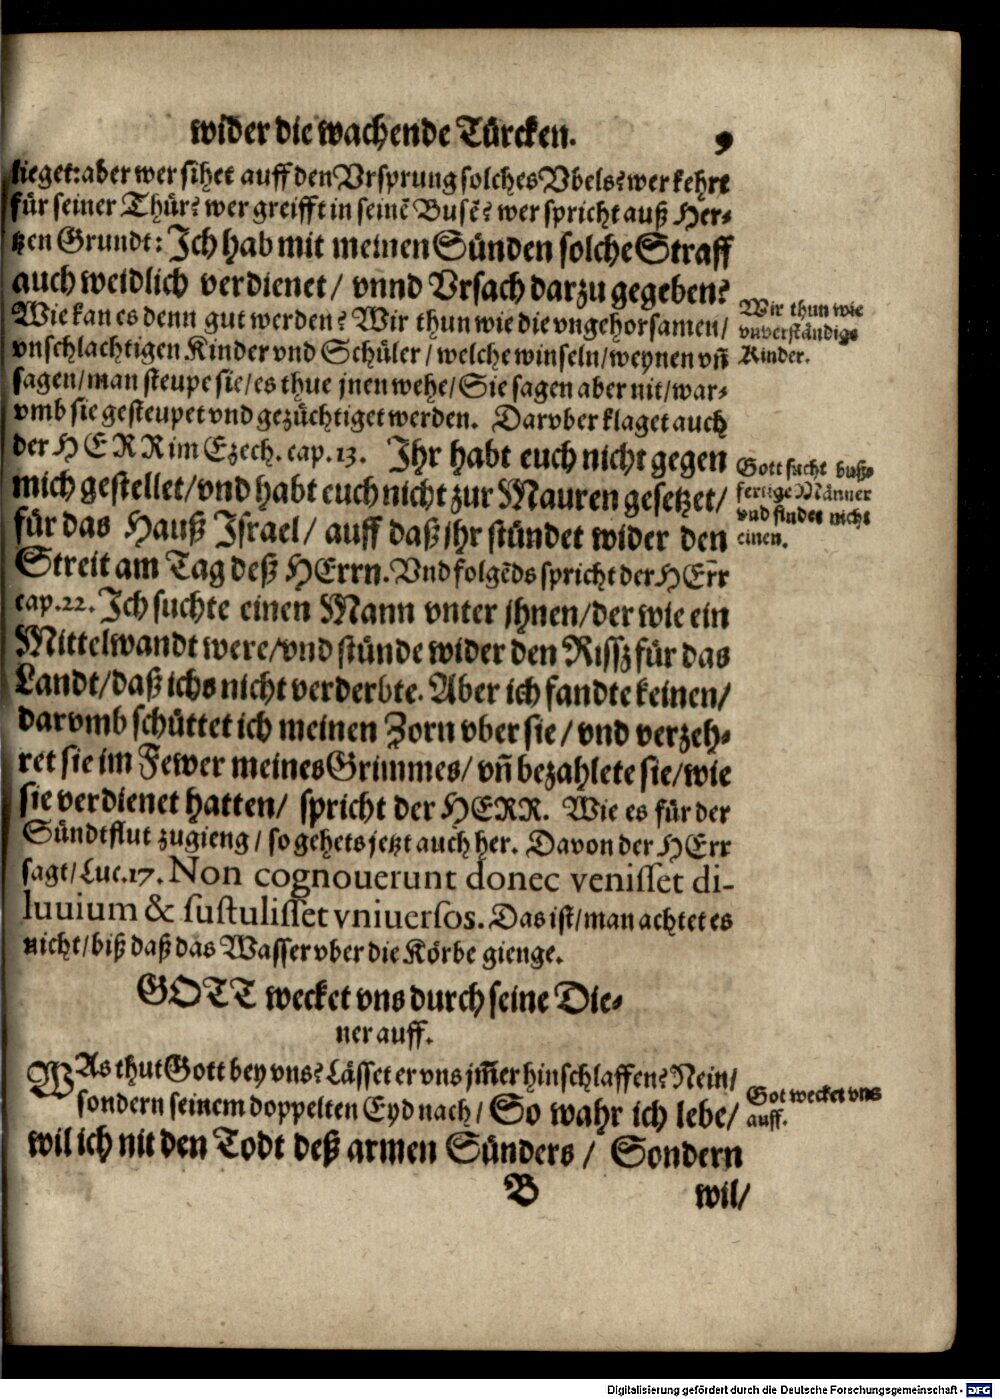 wider die wachende Türcken. 9
lieget: aber wer sihet auff den Vrsprung solches Vbels? wer kehrt
für seiner Thür? wer greifft in seinē Busē? wer spricht auß Her-
tzen Grundt: Ich hab mit meinen Sünden solche Straff
auch weidlich verdienet / vnnd Vrsach darzu gegeben?
Wie kan es denn gut werden? Wir thun wie die vngehorsamen/
vnschlachtigen Kinder vnd Schüler / welche winseln/weynen vñ
sagen/man steupe sie/es thue jnen wehe/Sie sagen aber nit/war-
vmb sie gesteupet vnd gezüchtiget werden. Darvber klaget auch
der HERR im Ezech. cap. 13. Ihr habt euch nicht gegen
mich gestellet/vnd habt euch nicht zur Mauren gesetzet/
für das Hauß Israel/ auff daß ihr stündet wider den
Streit am Tag deß HErrn. Vnd folgēds spricht der HErr
cap. 22. Ich suchte einen Mann vnter jhnen/der wie ein
Mittelwandt were/vnd stünde wider den Rissz für das
Landt/daß ichs nicht verderbte. Aber ich fandte keinen/
darvmb schüttet ich meinen Zorn vber sie / vnd verzeh-
ret sie im Fewer meines Grimmes/ vñ bezahlete sie/wie
sie verdienet hatten/ spricht der HERR. Wie es für der
Sündtflut zugieng / so gehets jetzt auch her. Davon der HErr
sagt/Luc. 17. Non cognouerunt donec venisset di-
luuium & sustulisset vniuersos. Das ist/man achtet es
nicht/biß daß das Wasser vber die Körbe gienge.
Wir thun wie
vnverständige
Kinder.
Gott sucht buß-
fertige Männer
vnd findet nicht
einen.
GOTT wecket vns durch seine Die-
ner auff.
WAs thut Gott bey vns? Lässet er vns jm̄er hinschlaffen? Nein/
sondern seinem doppelten Eyd nach / So wahr ich lebe/
wil ich nit den Todt deß armen Sünders / Sondern
Got wecket vns
auff.
B wil/
Digitalisierung gefördert durch die Deutsche Forschungsgemeinschaft - DFG